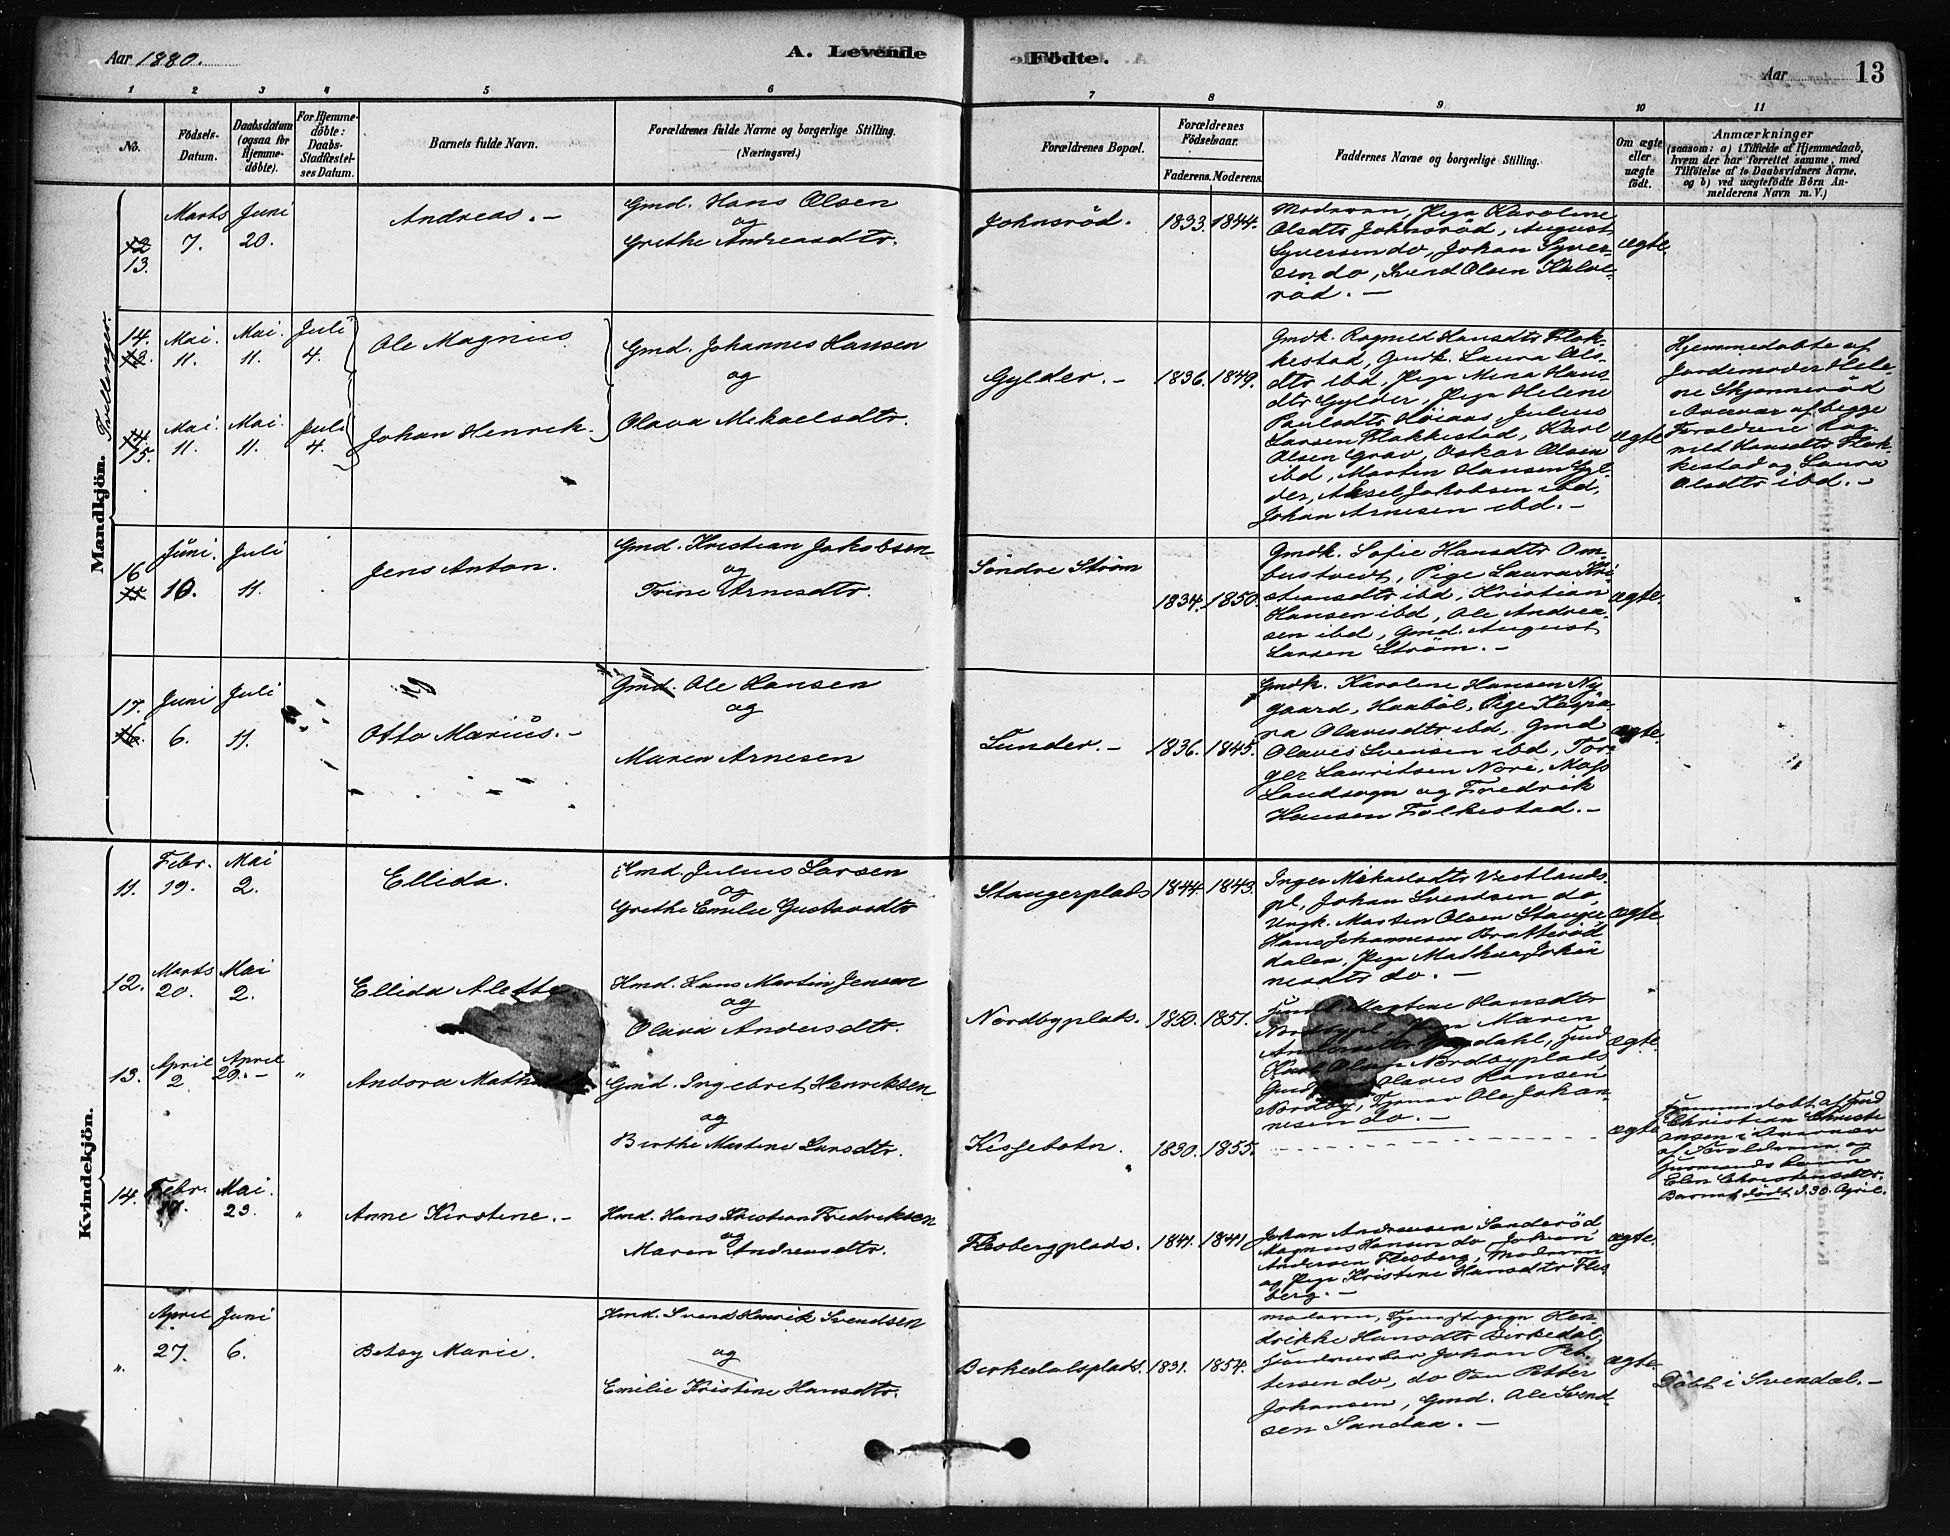 Aar 1880. A. Levende Födte. Aar 13
1 2 3 4 5 6 7 8 9 10 11
No.
Födsels-
Datum.
Daabsdatum
(ogsaa for
Hjemme-
döbte).
For Hjemme-
döbte:
Daabs-
Stadfæstel-
ses Datum.
Barnets fulde Navn.
Forældrenes fulde Navne og borgerlige Stilling.
(Næringsvei.)
Forældrenes Bopæl.
Forældrenes
Födselsaar.
Faderens. Moderens.
Faddernes Navne og borgerlige Stilling.
Om ægte
eller
uægte
födt.
Anmærkninger
(saasom: a) i Tilfælde af Hjemmedaab,
hvem der har forrettet samme, med
Tilföielse af to Daabsvidners Navne,
og b) ved uægtefödte Börn An-
melderens Navn m. V.)
Mandkjön.
Tvillinger.
12
13.
Marts
7.
Juni
20.
Andreas. -
Gmd. Hans Olsen
og
Grethe Andreasdtr.
Johnsröd.
1833. 1844.
Moderen, Pige Karoline
Olsdtr Johnsröd, August
Syversen do, Johan Syver-
sen do, Svend Olsen Kalve-
röd. -
ægte.
14.
13.
Mai.
11.
Mai.
11.
Juli
4.
Ole Magnus
Gmd. Johannes Hansen
og
Olava Mekaelsdtr.
Gylder. -
1836. 1849.
Gmdk. Ragnild Hansdtr Flak-
kestad, Gmdk. Laura Ols-
dtr ibd, Pige Mina Hans-
dtr Gylder, Pige Helene
Paulsdtr Höiaas, Julius
Larsen Flakkestad, Karl
Olsen Grav, Oskar Olsen
ibd, Martin Hansen Gyl-
der, Aksel Jakobsen ibd,
Johan Arnesen ibd. -
ægte
Hjemmedöbte af
Jordemoder Hele-
ne Skjönneröd
i Overvær af begge
Forældrene Rag-
nild Hansdtr Flak-
kestad og Laura
Olsdtr ibd. -
14.
15.
Mai.
11.
Mai.
11.
Juli
4.
Johan Henrik.
16
15
Juni.
10.
Juli
11.
Jens Anton.
Gmd. Kristian Jakobsen
og
Trine Arnesdtr.
Söndre Ström
1834. 1850.
Gmdk. Sofie Hansdtr Om-
bustvedt, Pige Laura Kri-
stiansdtr ibd, Kristian
Hansen ibd, Ole Andrea-
sen ibd, Gmd. August
Larsen Ström. -
ægte.
17.
16.
Juni
6.
Juli
11.
Otto Marius. -
Gmd. Ole Hansen
og
Maren Arnesen
Sunder. -
1836. 1845.
Gmdk. Karoline Hansen Ny-
gaard, Haaböl, Pige Kaspa-
ra Olavesdtr ibd, Gmd
Olaves Svensen ibd, Tor-
ger Lauritsen Nore, Moss
Landsogn og Fredrik
Hansen Folkestad. -
ægte.
Kvindekjön.
11.
Febr.
19.
Mai
2.
Ellida.
Hmd. Julius Larsen
og
Grethe Emilie Gustavsdtr
Stangerplads
1844. 1843.
Inger Mikaelsdtr Vestlands-
pl, Johan Svendsen do,
Ungk. Marten Olsen Stange
Hans Johannesen Bratteröd
dalen, Pige Mathea Johan
nesdtr do. -
ægte.
12.
Marts
20.
Mai
2.
Ellida Alette
Hmd. Hans Martin Jensen
og
Olava Andersdtr.
Nordbyplads.
1850. 1851.
Martine Hansdtr
Maren
dahl,
Olsen Nordbyplads,
Olaves Hansen
Nordby, Ole Johan-
nesen do. -
ægte.
13.
April
2
April
29. -
"
Andora
Gmd. Ingebret Henriksen
og
Birthe Martine Larsdtr.
1830. 1855.
ægte
döbt af
Christian Christi
ansen i Overvær
af Forældrene og
Elen Christensdtr.
Barnet död d. 30. April.
14.
Febr.
17.
Mai.
23.
"
Anne Kirstine. -
Hmd. Hans Kristian Fredriksen
og
Maren Andreasdtr.
Flesbergplads.
1841. 1841
Johan Andreasen Sanderöd
Magnus Hansen do, Johan
Andersen Flesberg, Moderen
og Pige Kristine Hansdtr Fles
berg. -
ægte.
".
April
27.
Juni
6.
Betsy Marie.
Hmd. Svend Henrik Svendsen
og
Emilie Kristine Hansdtr.
Birkedalsplads.
1831. 1854.
Moderen, Hen-
drikke Hansdtr Birkedal,
Johan Pet-
tersen do, do Petter
Johansen, Gmd. Ole Svend-
sen Sandaa. -
ægte.
Döbt i Svendal. -